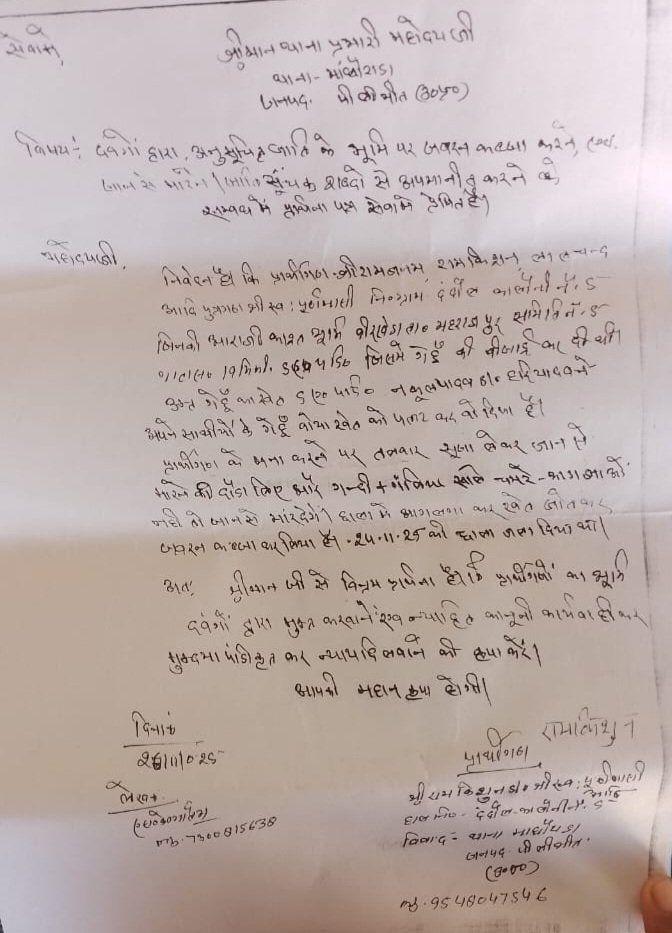 सेवामें,
श्रीमान थाना प्रभारी महोदय जी
थाना - माधोटांडा
जनपद. पीलीभीत (उ०प्र०)
विषय: दबंगों द्वारा, अनुसूचित जाति के भूमि पर जबरन कब्जा करने, एवं.
जान से मारने / जाति सूचक शब्दो से अपमानीत करने के
सम्बन्ध में प्रार्थना पत्र सेवामें प्रेषित है।
महोदयजी,
निवेदन है कि प्रार्थीगण श्री रामजनम, रामकिशन, लालचन्द
आदि पुत्रगण श्री स्व: पूर्णमासी नि० ग्राम कालोनी नं. 5
जिनकी आराजी काश्त भूमि ता० महराजपुर समिति नं. 5
19 मिमी. जिसमें गेहूँ की बीजाई कर दी थी।
उक्त गेहूँ का खेत नकुल यादव s/० हरि यादव ने
अपने साथीयों के गेहूँ बोया खेत को पलट कर बो दिया है।
प्रार्थीगण के मना करने पर तलवार लेकर जान से
मारने की दौडा लिए और गन्दी २ गालिया साले चमरे - भाग जाओ
नही तो जान से मार देगें। छाला मे आग लगा कर खेत जोतकर
जबरन कब्जा कर लिया है। . 24.11.25 को छाला जला दिया था।
अत: श्रीमान जी से विनम्र प्रार्थना है कि प्रार्थीगणों का भूमि
दबंगों द्वारा मुक्त करवाने एवं न्यायहित कानूनी कार्यवाही कर
मुकदमा पंजिकृत कर न्याय दिलवाने की कृपा करें।
आपकी महान कृपा होगी।
दिनांक
रामकिशुन
प्रार्थीगण
लेखक
मो. 7300815638
श्री राम किशुन s/० श्री स्व: पूर्णमासी
आदि
कालोनी नं. 5
थाना माधोटांडा
जनपद पीलीभीत.
(उ०प्र०)
मो. 9548047546